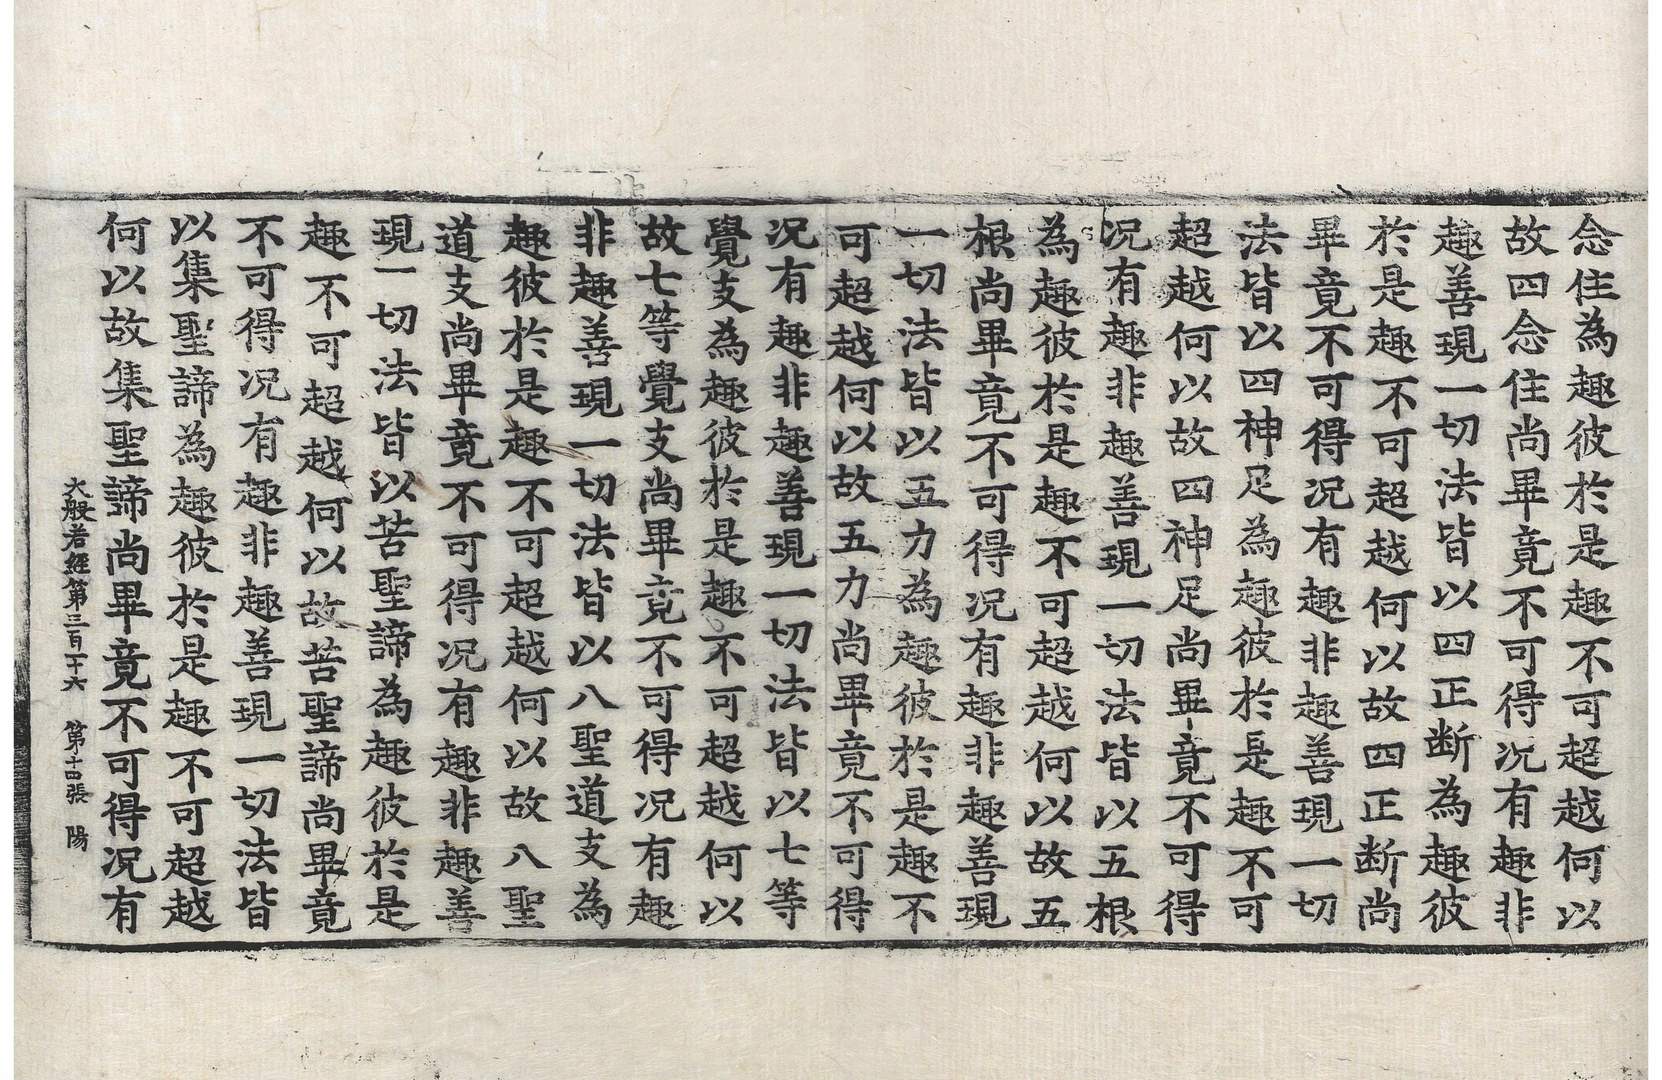 念住為趣彼於是趣不可超越何以
故四念住尚畢竟不可得况有趣非
趣善現一切法皆以四正断為趣彼
於是趣不可超越何以故四正断尚
畢竟不可得况有趣非趣善現一切
法皆以四神足為趣彼於是趣不可
超越何以故四神足尚畢竟不可得
况有趣非趣善現一切法皆以五根
為趣彼於是趣不可超越何以故五
根尚畢竟不可得况有趣非趣善現
一切法皆以五力為趣彼於是趣不
可超越何以故五力尚畢竟不可得
况有趣非趣善現一切法皆以七等
覺支為趣彼於是趣不可超越何以
故七等覺支尚畢竟不可得况有趣
非趣善現一切法皆以八聖道支為
趣彼於是趣不可超越何以故八聖
道支尚畢竟不可得况有趣非趣善
現一切法皆以苦聖諦為趣彼於是
趣不可超越何以故苦聖諦尚畢竟
不可得况有趣非趣善現一切法皆
以集聖諦為趣彼於是趣不可超越
何以故集聖諦尚畢竟不可得况有
大般若經第三百一十六 第十四張 陽